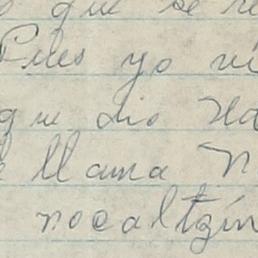 que se
Pues yo vi
que dio
llama
nocaltzin